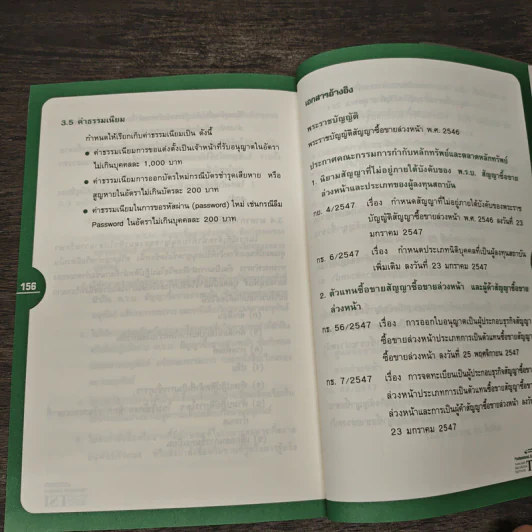 3.5 ค่าธรรมเนียม
กำหนดให้เรียกเก็บค่าธรรมเนียมเป็น ดังนี้
● ค่าธรรมเนียมการขอแต่งตั้งเป็นเจ้าหน้าที่รับอนุญาตในอัตรา
ไม่เกินบุคคลละ 1,000 บาท
● ค่าธรรมเนียมการออกบัตรใหม่กรณีบัตรชำรุดเสียหาย หรือ
สูญหายในอัตราไม่เกินบัตรละ 200 บาท
● ค่าธรรมเนียมในการขอรหัสผ่าน (password) ใหม่ เช่นกรณีลืม
Password ในอัตราไม่เกินบุคคลละ 200 บาท
156
เอกสารอ้างอิง
พระราชบัญญัติ
พระราชบัญญัติสัญญาซื้อขายล่วงหน้า พ.ศ. 2546
ประกาศคณะกรรมการกำกับหลักทรัพย์และตลาดหลักทรัพย์
1. นิยามสัญญาที่ไม่อยู่ภายใต้บังคับของ พ.ร.บ. สัญญาซื้อขาย
ล่วงหน้าและประเภทของผู้ลงทุนสถาบัน
กย. 4/2547 เรื่อง กำหนดสัญญาที่ไม่อยู่ภายใต้บังคับของพระราช
บัญญัติสัญญาซื้อขายล่วงหน้า พ.ศ. 2546 ลงวันที่ 23
มกราคม 2547
กธ. 6/2547 เรื่อง กำหนดประเภทนิติบุคคลที่เป็นผู้ลงทุนสถาบัน
เพิ่มเติม ลงวันที่ 23 มกราคม 2547
2. ตัวแทนซื้อขายสัญญาซื้อขายล่วงหน้า และผู้ค้าสัญญาซื้อขาย
ล่วงหน้า
กธ. 56/2547 เรื่อง การออกใบอนุญาตเป็นผู้ประกอบธุรกิจสัญญา
ซื้อขายล่วงหน้าประเภทการเป็นตัวแทนซื้อขายสัญญา
ซื้อขายล่วงหน้า ลงวันที่ 25 พฤศจิกายน 2547
กธ. 7/2547 เรื่อง การจดทะเบียนเป็นผู้ประกอบธุรกิจสัญญาซื้อขาย
ล่วงหน้าประเภทการเป็นตัวแทนซื้อขายสัญญาซื้อขาย
ล่วงหน้าและการเป็นผู้ค้าสัญญาซื้อขายล่วงหน้า ลงวันที่
23 มกราคม 2547